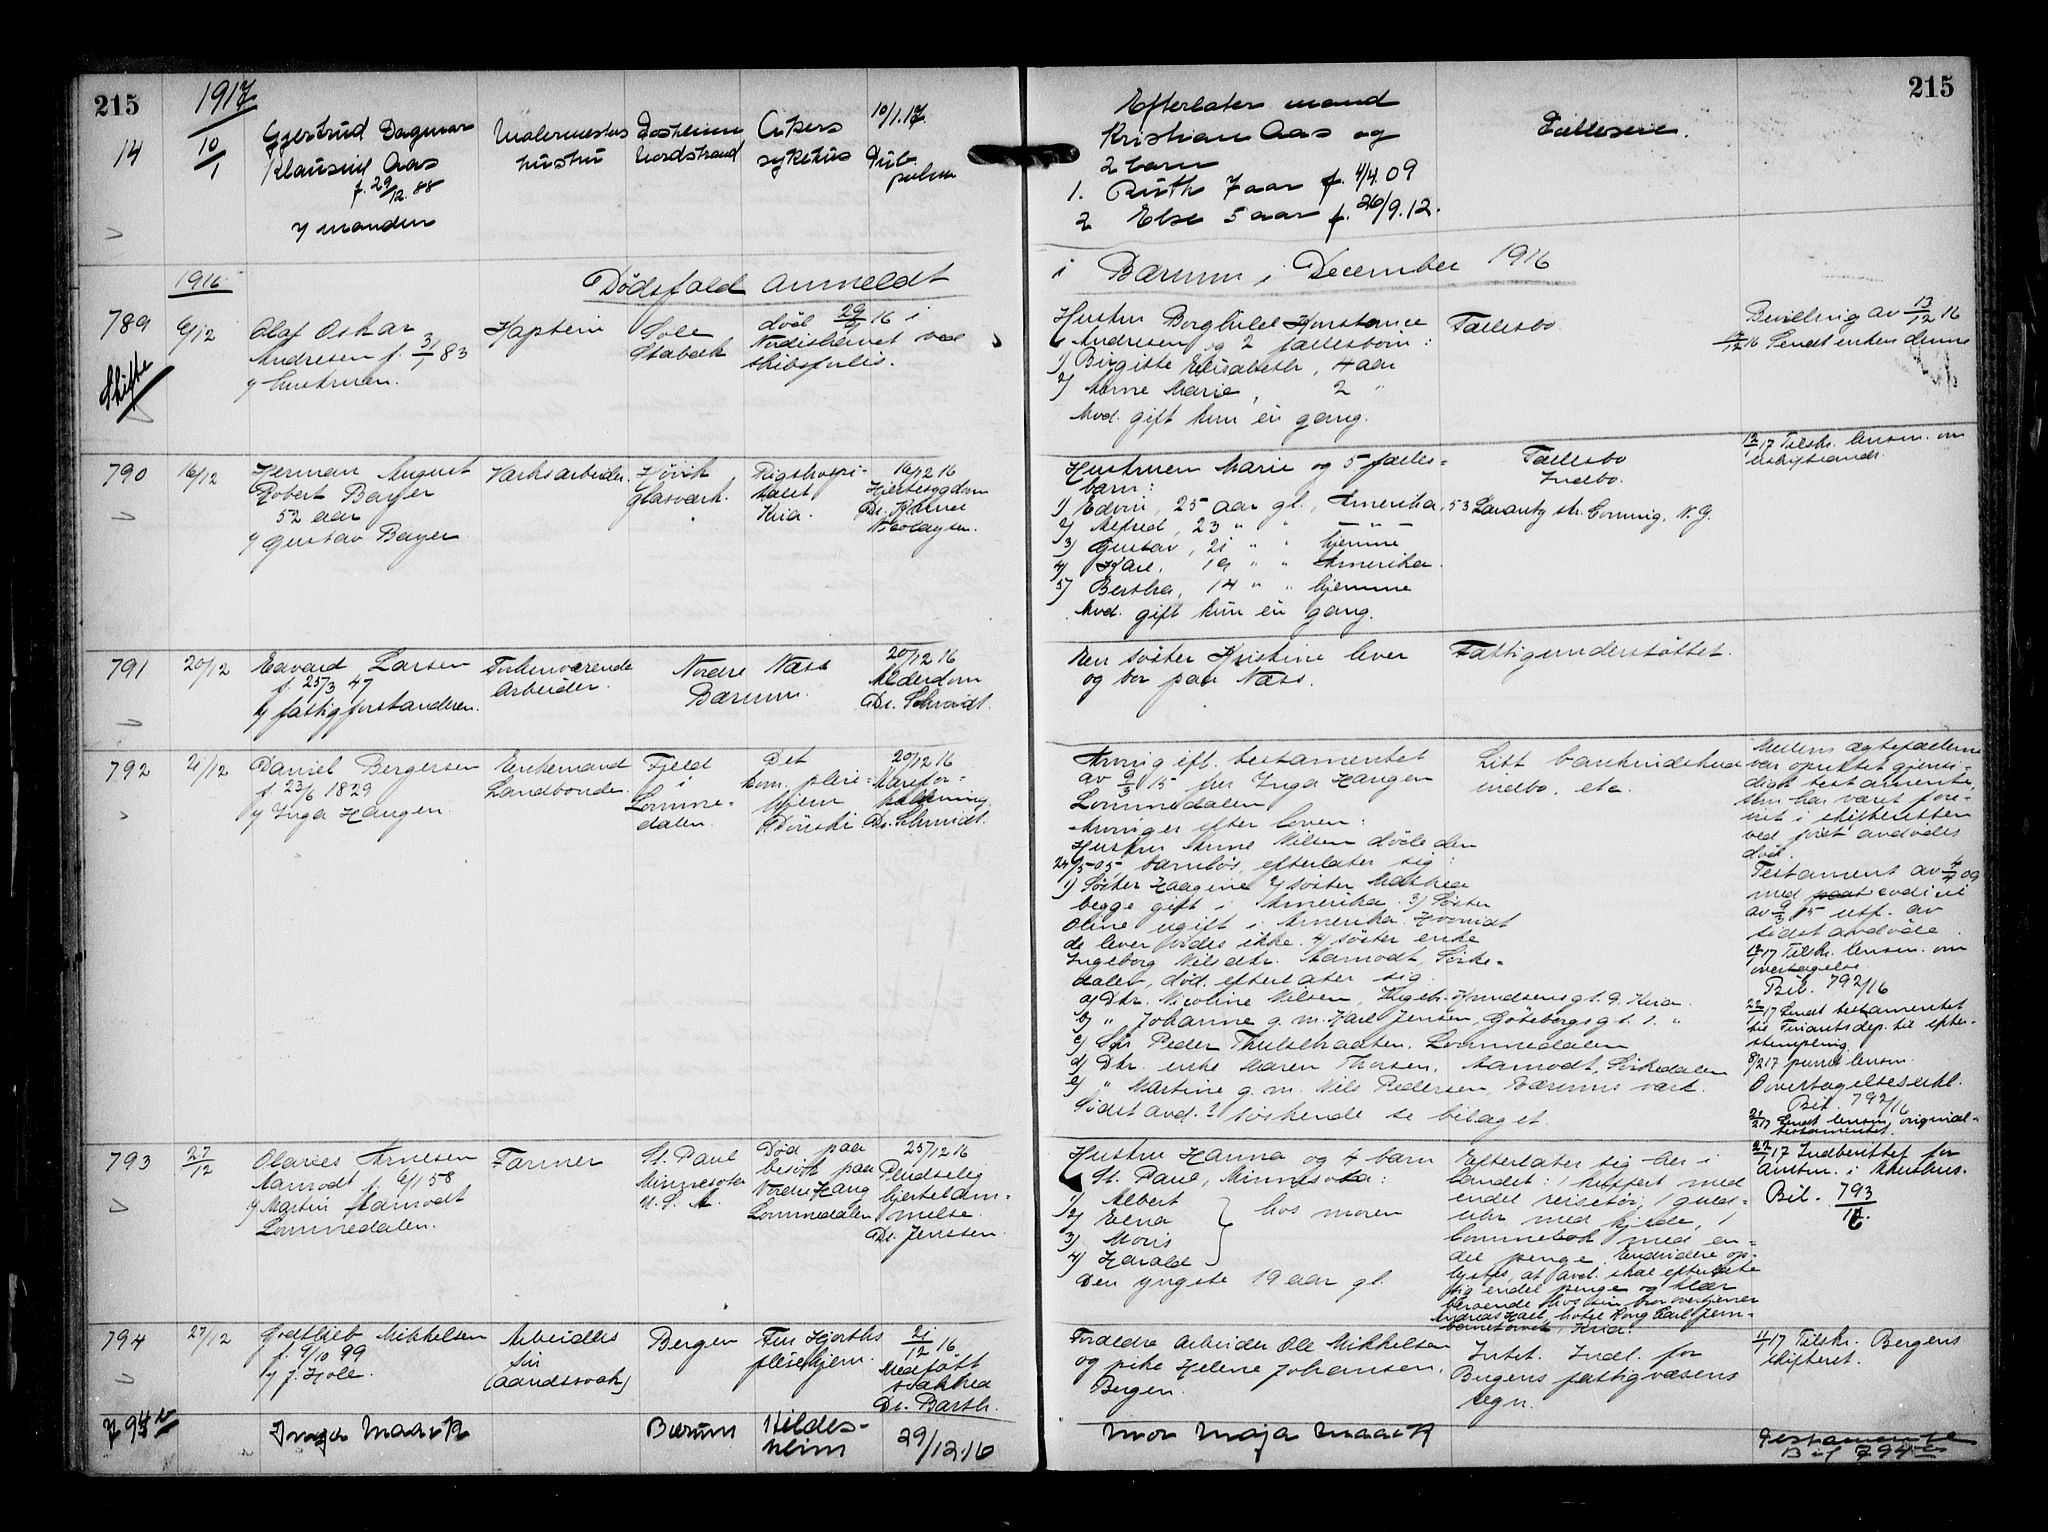 215
1917
14
10/1
Gjertrud Dagmar
Klausine Aas
f. 29/12. 88
v/ manden
Malermesters
hustru
Nordstrand
Akers
sykehus
10/1.17
Tub.
pulm
Efterlater mand
Kristian Aas og
2 barn
1. Ruth 7 aar f. 4/4.09
2 Else 5 aar f. 26/9.12.
Fælleseie.
215
1916
Dødsfald anmeldt i Bærum i December 1916
789
Skifte
6/12
Olaf Oskar
Andresen f. 3/1 83
v/ hustruen.
Kaptein
Sole
Stabæk
død 29/9 16 i
Nordishavet ved
skibsforlis.
Hustru Borghild Konstance
Andresen og 2 fællesbarn:
1) Birgitte Elisabeth, 4 aar
2) Anne Marie, 2 "
Avd. gift kun en gang.
Fællesbo
Bevilling av 13/12 16
16 Sendt enken denne
790
16/12
Herman August
Robert Bayer
52 aar
v/ Gustav Bayer
Verksarbeider
Høvik
glasværk.
Rigshospi-
talet
Kria.
16/12 16
Hjertesygdom
Dr.
Nicolaysen
Hustruen Marie og 5 fælles-
barn:
1) Edvin, 25 aar gl., Amerika, 53 Corning, N.Y.
2) Alfred, 23 " " — " —
3) Gustav, 21 " " hjemme
4) Karl, 19 " " Amerika.
5) Bertha, 14 " " hjemme
Avd. gift kun en gang.
Fællesbo
Indbo.
17 Tilskr. lensm. om
791
20/12
Edvard Larsen
f. 25/3 47
v/ fattigforstanderen.
Forhenværende
Arbeider.
Nordre Næss
Bærum.
20/12 16
Alderdom
Dr. Schmidt.
En søster Kristine lever
og bor paa Næss.
Fattigunderstøttet.
792
21/12
Daniel Bergersen
f. 23/6 1829
v/ Inga Haugen
Enkemand
Landbonde
Fjeld
i
Lomme-
dalen.
Det
kom. pleie-
hjem
Dønski
20/12 16
Aarefor-
kalkning
Dr. Schmidt.
Arving eft. testamentet
av 9/3 15 fru Inga Haugen
Lommedalen
Arvinger efter loven:
Hustru Anne Nilsen døde den
24/5-05, barnløs, efterlater sig:
1) Søster Haagine 2) søster Mathea
begge gift i Amerika. 3) Søster
Oline ugift i Amerika. Hvorvidt
de lever vides ikke. 4) søster enke
Ingeborg Nilsdtr. Aamodt, Sørke-
dalen, død, efterlater sig
a) Dtr. Nicoline Nilsen, Knudsens gt. 9. Kria.
b) " Johanne g. m. Karl Jensen, Göteborgsgt. 1. "
c) Søn Peder Thulselraaten, Lommedalen
d) Dtr. enke Maren Thorsen, Aamodt, Sørkedalen
e) " Martine g. m. Nils Pedersen, Bærums værk.
Sidst avd.s søskende se bilaget.
Litt
indbo. etc.
Mellem ægtefællerne
var oprettet gjensi-
digt testamente,
som har været fore-
vist i skifteretten
ved først avdødes
død.
Testament av 4/4 09
med codicil
av 9/3 15 utf. av
sidst avdøde.
17 Tilskr. lensm. om
overtagelse
Bil. 792/16
22/1 17 Sendt testamentet
til Finantsdep. til efter-
stempling.
8/2 17 purret lensm.
Overtagelseserkl.
Bil. 792/16
21/2 17 Sendt lensm. original-
testamentet
793
27/12
Olaves Arnesen
Aamodt f. 58
v/ Martin Aamodt
Lommedalen.
Farmer
St. Paul
Minnesota
U. S. A.
Død paa
besøk paa
Nordre Haug
Lommedalen
25/12 16
Pludselig
hjertelam-
melse.
Dr. Jenssen.
Hustru Hanna og 4 barn
St. Paul, Minnesota:
1) Albert
2) Edna
3) Moris
4) Harald
hos moren
Den yngste 19 aar gl.
Efterlater sig her i
landet: 1 kuffert med
endel reisetøi, 1 guld-
uhr med kjede, 1
lommebok med en-
del penge. Endvidere op-
lystes, at avd. skal efterlate
sig endel penge og klær
beroende hos sin bror overtjener
Hotel Kong Karl Jern-
banetorvet, Kria.
22/2 17 Indberettet for
amtm. i Akershus.
Bil. 793/16
794
27/12
Godtlieb Mikkelsen
f. 9/10 99
v/ J. Hole.
Arbeidles
Søn
(aandssvak)
Bergen
Fru Hjorths
pleiehjem.
21/12 16
Medfødt
svakhed
Dr. Barth.
Forældre arbeider Ole Mikkelsen
og pike Helene Johansen,
Bergen.
Intet. Indl. for
Bergens fattigvæsens
regn.
17 Tilskr. Bergens
skifteret.
794 b
Maack
Bærum
Hildes-
heim
29/12.16
Mor Maja Maack
Testamente
Bil 794